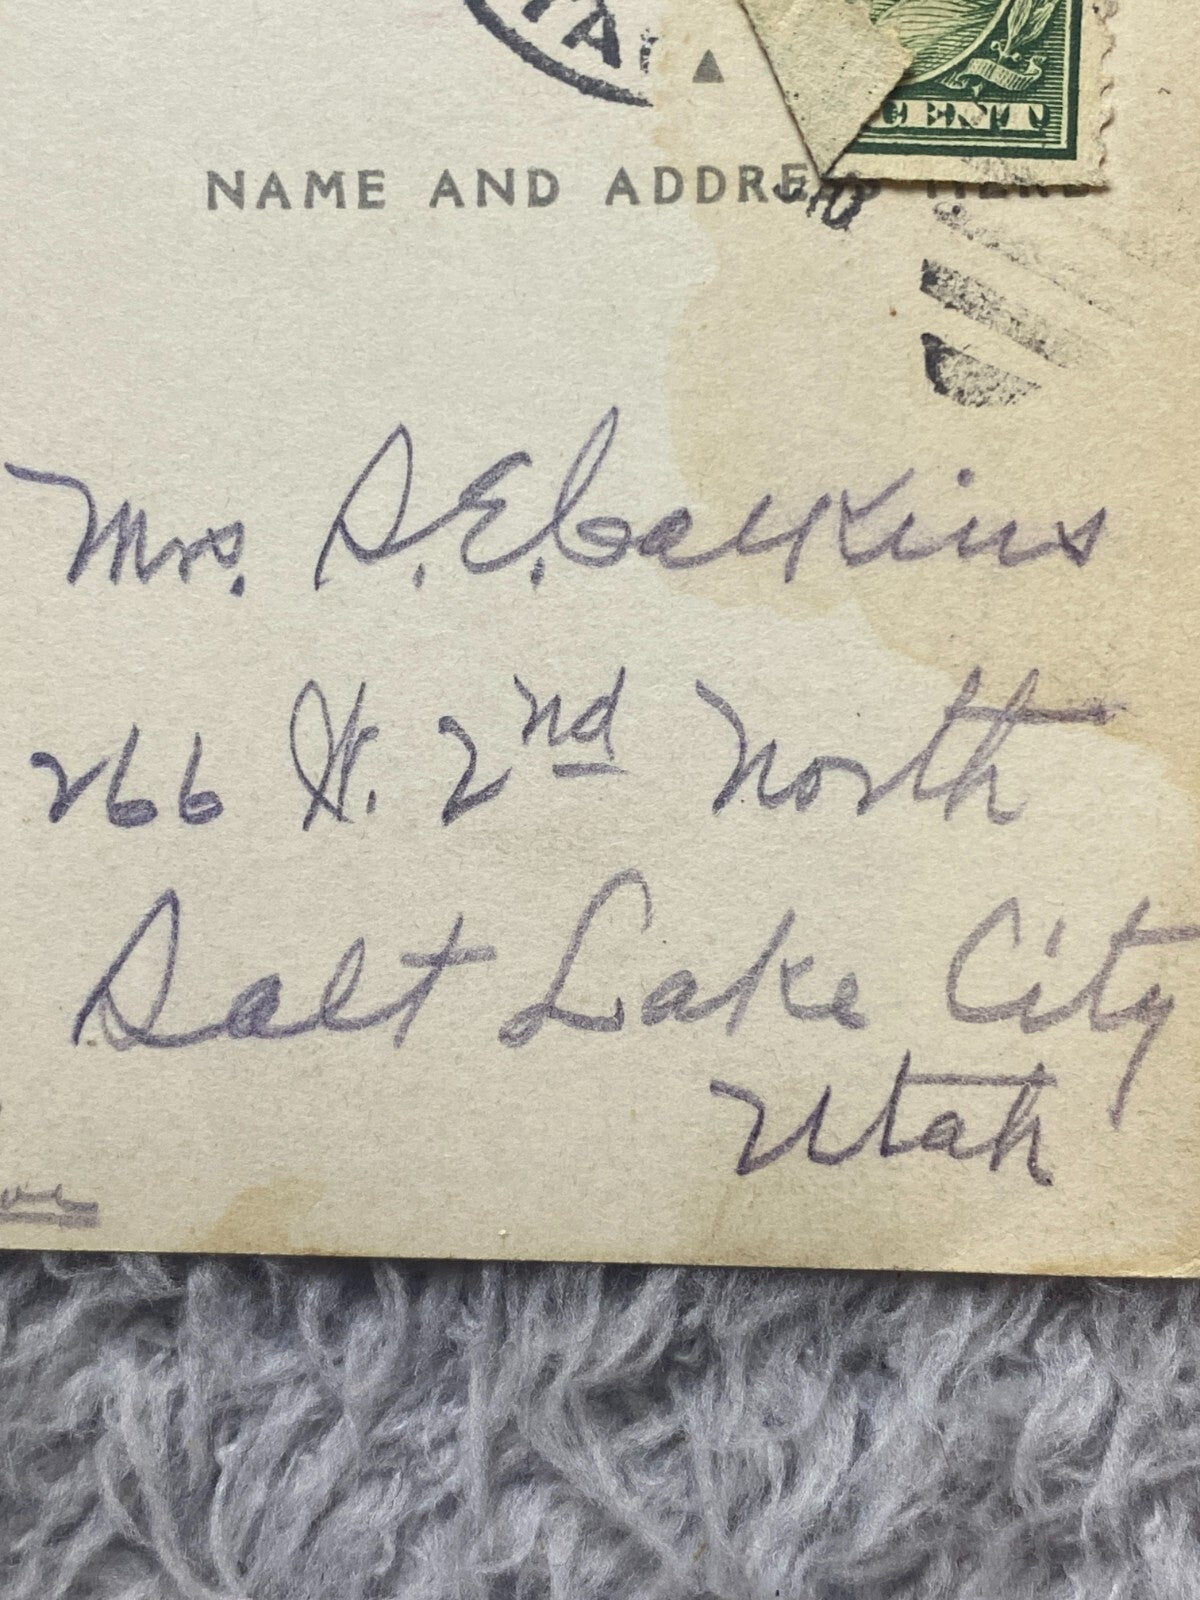 TA
CENT
NAME AND ADDRESS HERE
Mrs. S. E. Calkins
266 W. 2nd North
Salt Lake City
Utah